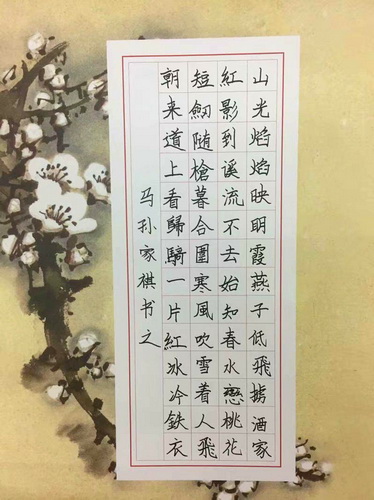 山光焰焰映明霞燕子低飛掠酒家
紅影到溪流不去始知春水戀桃花
短劒随槍暮合圍寒風吹雪着人飛
朝来道上看歸騎一片紅冰冷鉄衣
马孙家祺书之